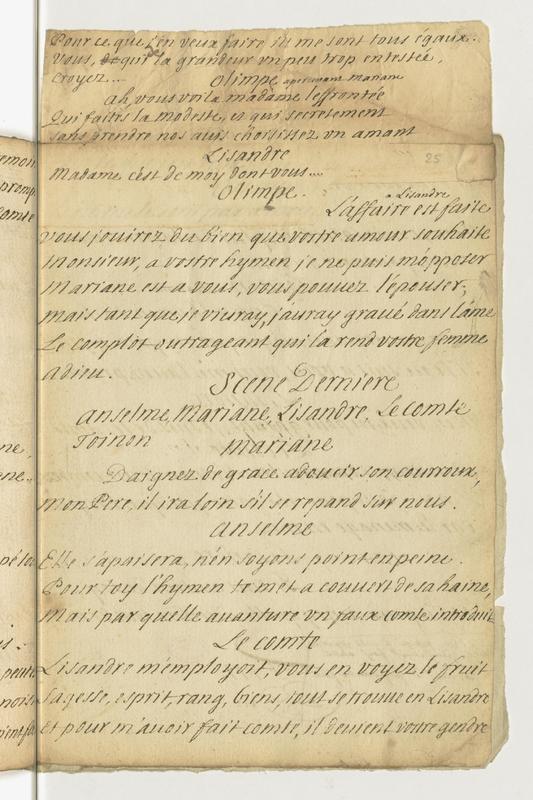 Pour ce que j'en veux faire ils me sont tous égaux..
Vous, qui la grandeur vn peu trop entestée,
croyez...
Olimpe apercevant mariane
ah, vous voila madame l'effrontée
Qui faites la modeste, et qui secretement
sans prendre nos auis choisissez vn amant
Lisandre
Madame c'est de moy dont vous....
25
Olimpe.
a Lisandre
L'affaire est faite
vous jouirez du bien que vostre amour souhaite
Monsieur, a vostre hymen je ne puis m'opposer
Mariane est a vous, vous pouvez l'épouser;
mais tant que je viuray, j'auray graué dans l'ame
Le complot outrageant qui la rend vostre femme
adieu.
Scene Derniere
anselme, Mariane, Lisandre, Le comte
Toinon
mariane
Daignez de grace adoucir son courroux,
mon Pere, il ira loin s'il se repand sur nous.
anselme
Elle s'apaisera, n'en soyons point en peine.
Pour toy l'hymen te met a couvert de sa haine,
Mais par quelle auanture vn faux comte introduit
Le comte
Lisandre m'employoit, vous en voyez le fruit
sagesse, esprit, rang, biens, tout se trouue en Lisandre
Et pour m'avoir fait comte, il devient vostre gendre